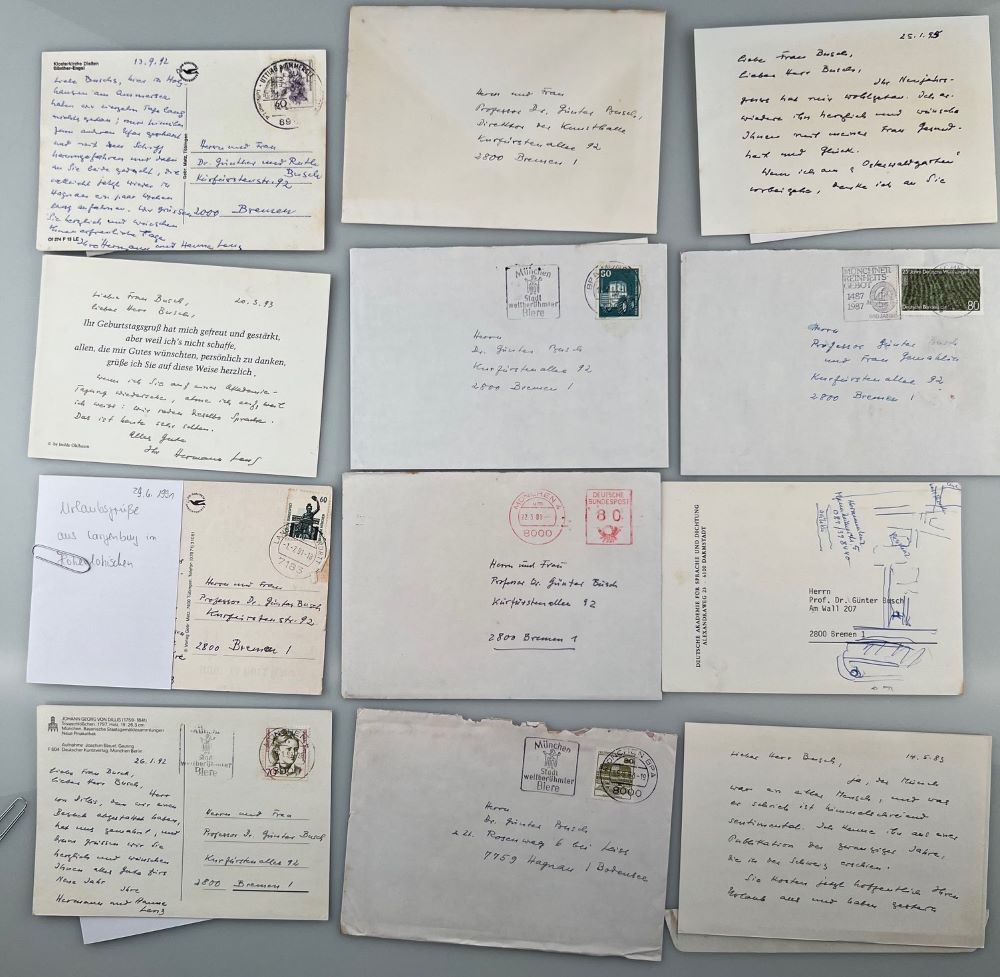 Klosterkirche Dießen
Günther-Engel
13.9.92
Liebe Buschs, hier in Holz-
hausen am Ammersee
haben wir vierzehn Tage lang
nichts getan; nur
zum anderen Ufer geschaut
und mit dem Schiff
herumgefahren und dabei
an Sie beide gedacht, die
vielleicht jetzt wieder in
Hagnau ein paar Wochen
lang ausruhen. Wir grüssen
Sie herzlich und wünschen
Ihnen erfreuliche Tage
Ihre Hermann und Hanne Lenz
01 274 F 13 LE
Gebr. Metz, Tübingen
Herrn und Frau
Dr. Günther und Ruth
Busch
Kürfürstenstr. 92
2000 Bremen
Herrn und Frau
Professor Dr. Günter Busch,
Direktor der Kunsthalle
Kurfürstenallee 92
2800 Bremen 1
25.1.95
Liebe Frau Busch,
lieber Herr Busch,
Ihr Neujahrs-
gruss hat mir wohlgetan. Ich er-
wiedere ihn herzlich und wünsche
Ihnen mit meiner Frau Gesund-
heit und Glück.
Wenn ich am "Osterwaldgarten"
vorbeigehe, denke ich an Sie
Liebe Frau Busch, 20.3.93
lieber Herr Busch,
Ihr Geburtstagsgruß hat mich gefreut und gestärkt,
aber weil ich's nicht schaffe,
allen, die mir Gutes wünschten, persönlich zu danken,
grüße ich Sie auf diese Weise herzlich,
wenn ich Sie auf einer Akademie-
Tagung wiedersehe, atme ich auf, weil
ich weiß: wir reden dieselbe Sprache.
Das ist heute sehr selten.
Alles Gute
Ihr Hermann Lenz
München
Stadt
weltberühmter
Biere
50
Herrn
Dr. Günter Busch
Kurfürstenallee 92
2800 Bremen 1
MÜNCHNER
REINHEITS
GEBOT
1487
1987
25 Jahre Deutsche Welthungerhilfe
Deutsche Bundespost 80
Herrn
Professor Günter Busch
und Frau Gemahlin
Kurfürstenallee 92
2800 Bremen 1
29.6.1991
Urlaubsgrüße
aus Langenburg in
Hohenlohischen
60
-1.-7.91-18
7183
Herrn und Frau
Professor Dr. Günter Busch
Kurfürstenstr. 92
2800 Bremen 1
MÜNCHEN 4
22.3.89
8000
DEUTSCHE
BUNDESPOST
80
Herrn und Frau
Professor Dr. Günter Busch
Kürfürstenallee 92
2800 Bremen 1
DEUTSCHE AKADEMIE FÜR SPRACHE UND DICHTUNG
ALEXANDRAWEG 23 · 6100 DARMSTADT
Herrn
Prof. Dr. Günter Busch
Am Wall 207
2800 Bremen 1
JOHANN GEORG VON DILLIS (1759-1841)
Triva-schlößchen. 1797. Holz, 19:26,3 cm
München. Bayerische Staatsgemäldesammlungen
Neue Pinakothek
Aufnahme: Joachim Blauel, Gauting
F 604 Deutscher Kunstverlag, München Berlin
26.1.92
Liebe Frau Busch,
lieber Herr Busch, Herr
von Dillis, dem wir einen
Besuch abgestattet haben,
hat uns gemahnt, und
drum grüssen wir Sie
herzlich und wünschen
Ihnen alles Gute fürs
Neue Jahr
Ihre
Hermann und Hanne
Lenz
München
Stadt
weltberühmter
Biere
Herrn und Frau
Professor Dr. Günter Busch
Kurfürstenallee 92
2800 Bremen 1
München
Stadt
weltberühmter
Biere
MÜNCHEN BPA
8000
Herrn
Dr. Günter Busch
z. Zt. Rosenweg 6 bei
7759 Hagnau / Bodensee
Lieber Herr Busch, 14.5.83
ja, der Münch
war ein alter Mensch, und was
er schrieb ist himmelschreiend
sentimental. Ich kenne ihn aus einer
Publikation der zwanziger Jahre,
die in der Schweiz erschien.
Sie kosten jetzt hoffentlich Ihren
Urlaub aus und haben gestern